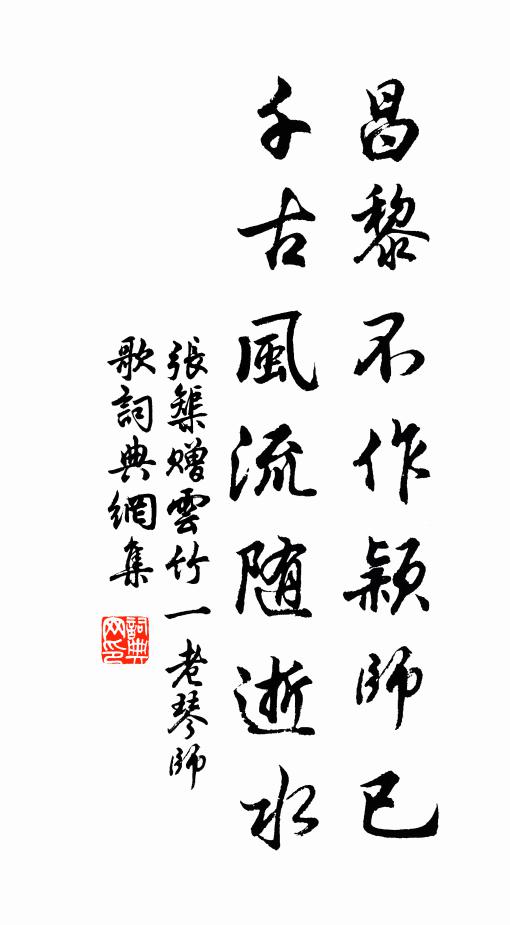 昌黎不作颖師已
千古風流随逝水
張榘赠雲竹一老琴師
歌詞典網集
詞典网印